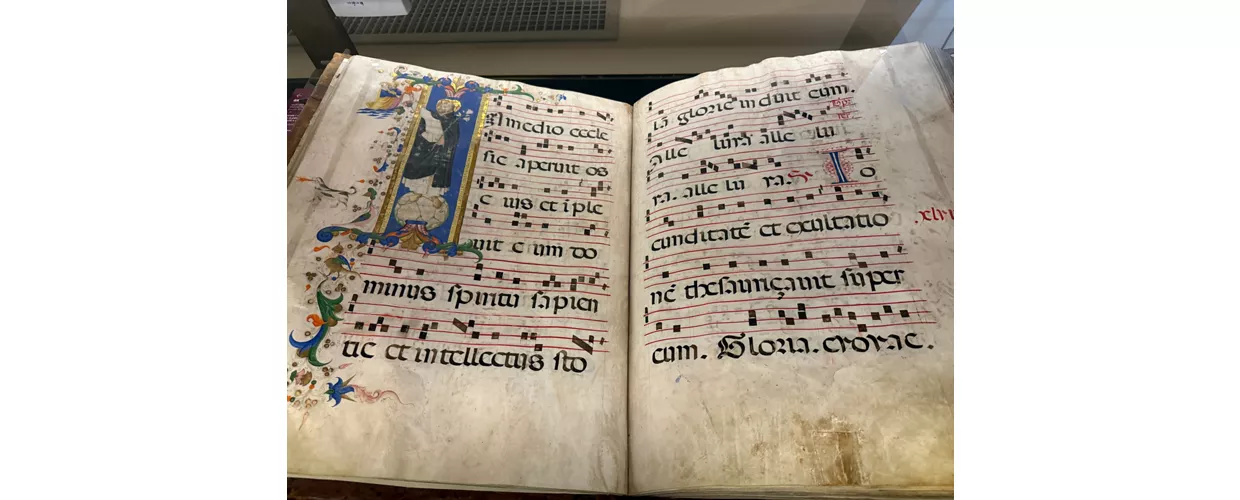 In medio eccle
sie aperuit os
eius et iple
uit eum do
minus spiritu sapien
tie et intellectus sto
lā glorie induit eum.
alle luia alle lu
ia. alle lu ia. Io
cunditatē et exultatio
nē thesauriçauit super
eum. Gloria. evovae.
xlvi